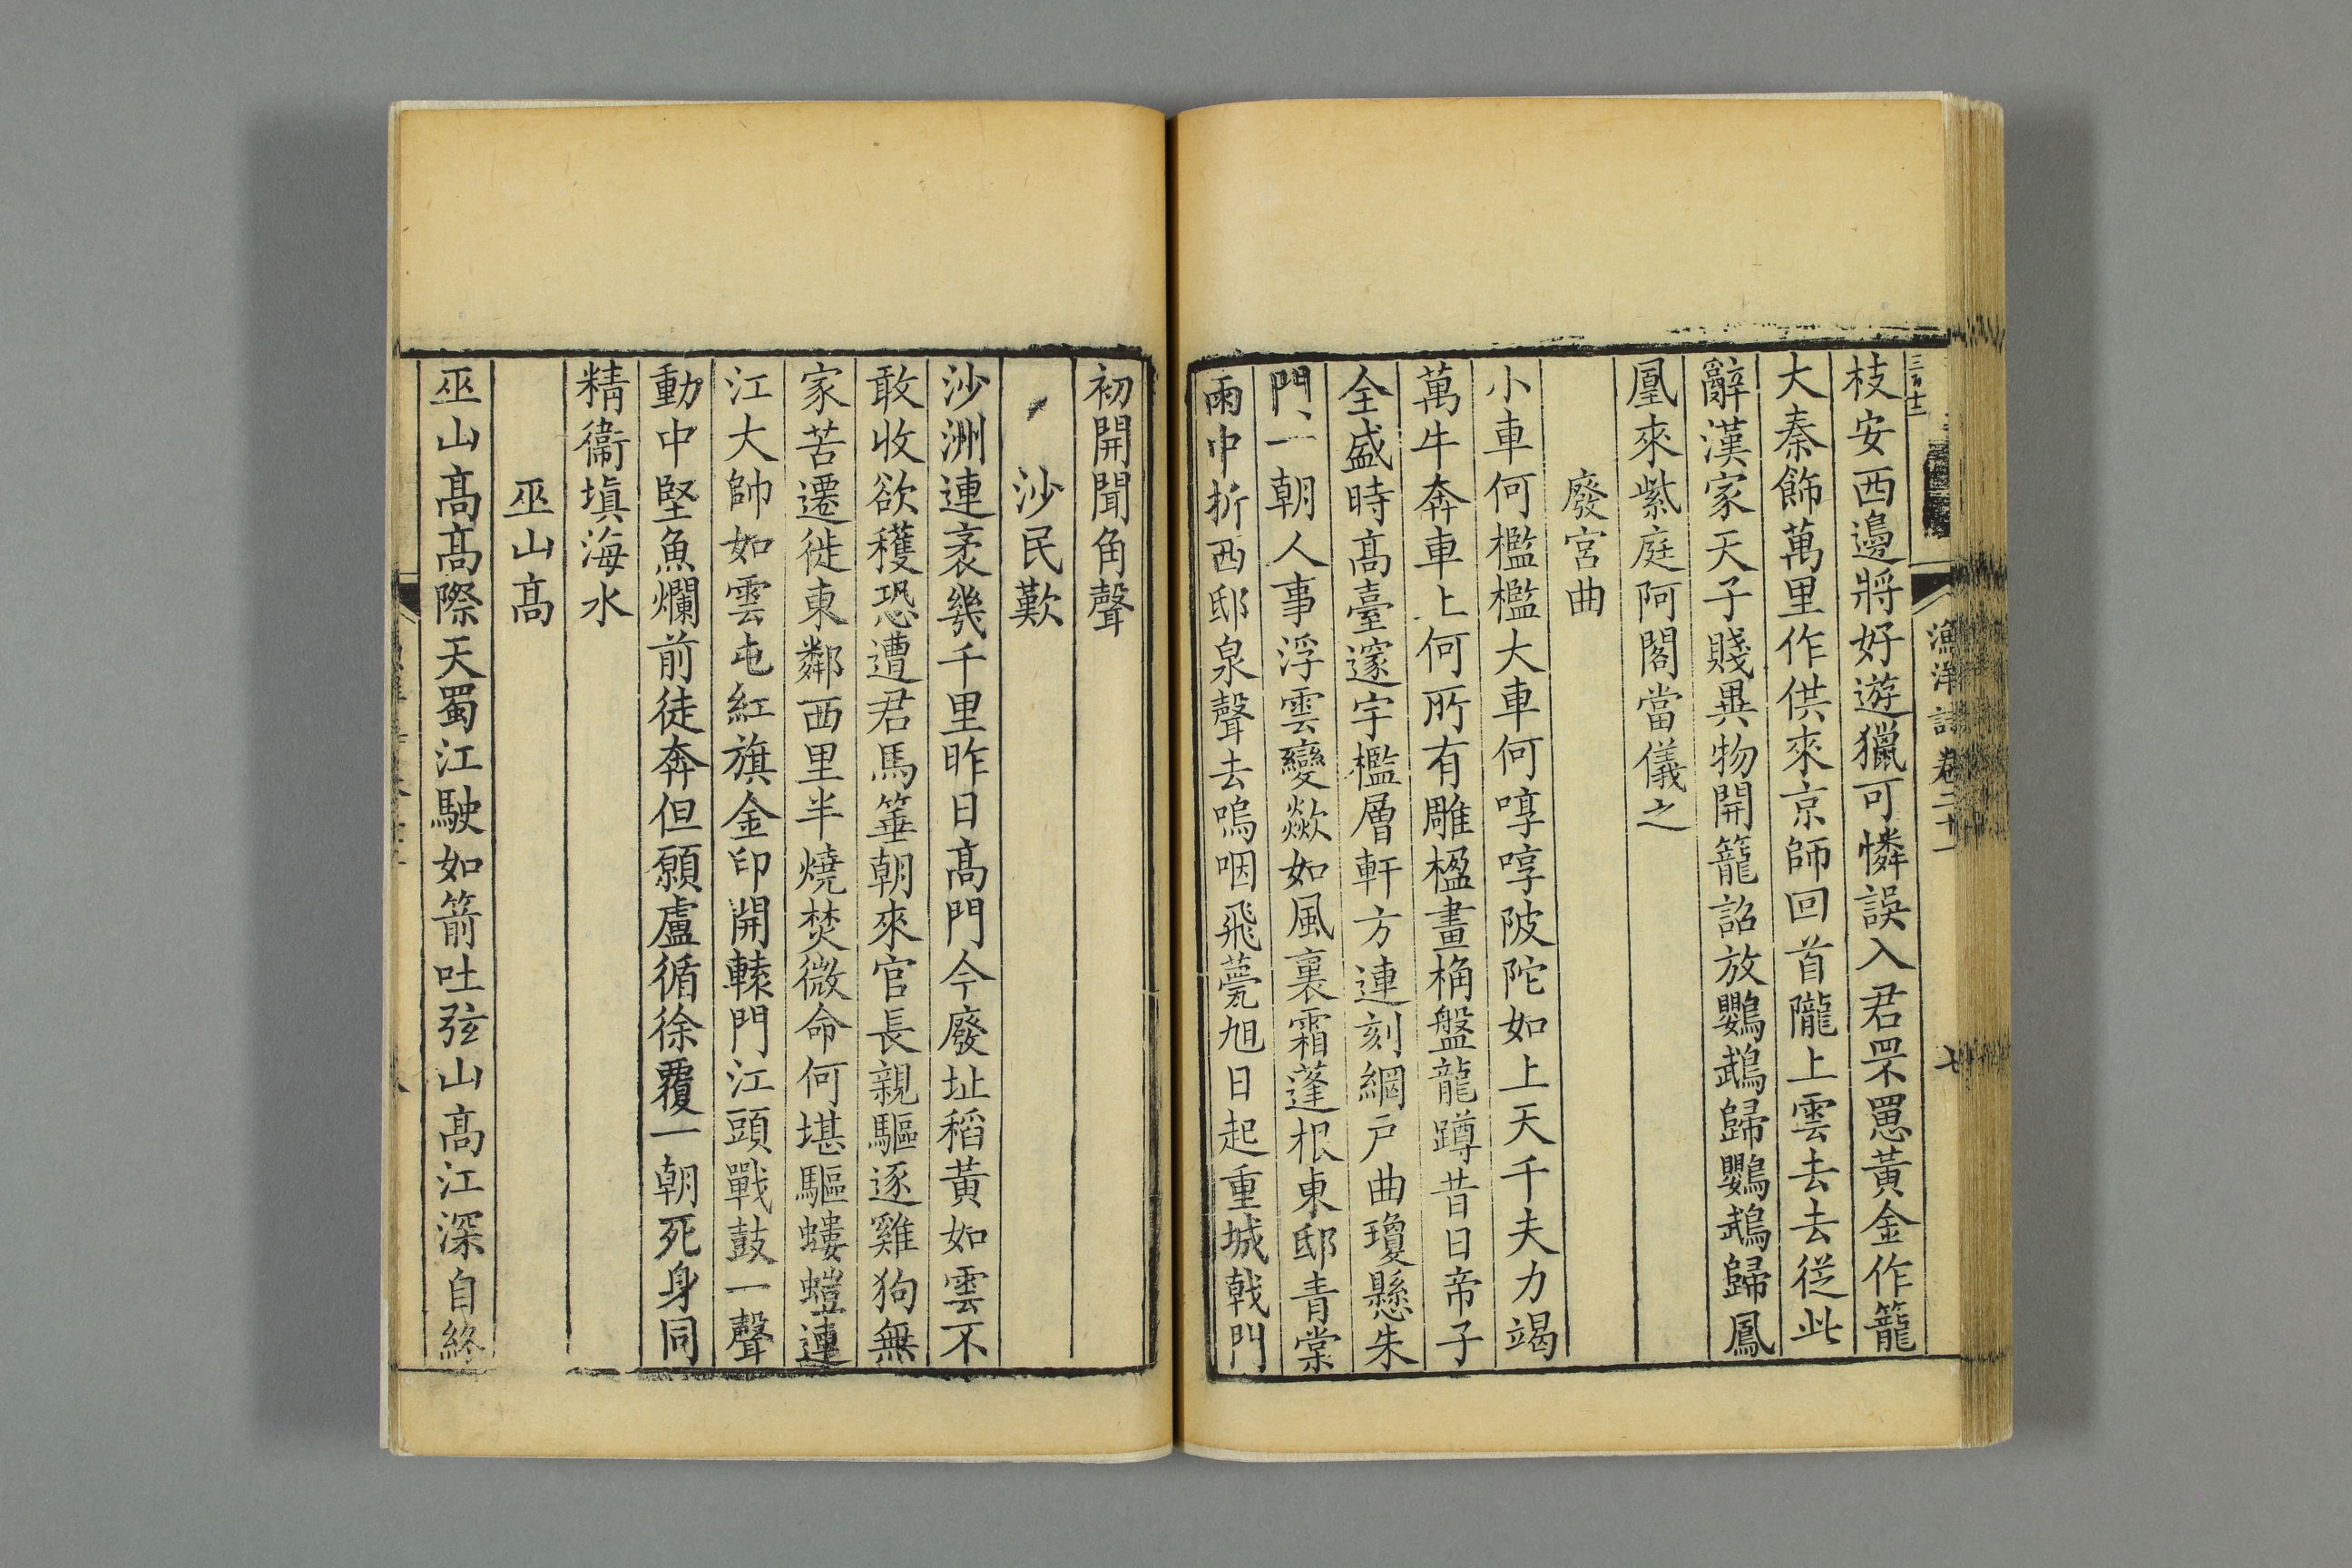 漁洋詩卷二十一
七
枝安西邊將好遊獵可憐誤入君罘罳黃金作籠
大秦飾萬里作供來京師回首隴上雲去去從此
辭漢家天子賤異物開籠詔放鸚鵡歸鸚鵡歸鳳
凰來紫庭阿閣當儀之
廢宮曲
小車何檻檻大車何啍啍陂陀如上天千夫力竭
萬牛奔車上何所有雕楹畫桷盤龍蹲昔日帝子
全盛時高臺邃宇檻層軒方連刻網戶曲瓊懸朱
門一朝人事浮雲變歘如風裏霜蓬根東邸青棠
雨中折西邸泉聲去嗚咽飛甍旭日起重城戟門
初開聞角聲
沙民歎
沙洲連袤幾千里昨日高門今廢址稻黃如雲不
敢收欲穫恐遭君馬箠朝來官長親驅逐雞狗無
家苦遷徙東鄰西里半燒焚微命何堪驅螻螘連
江大帥如雲屯紅旗金印開轅門江頭戰鼓一聲
動中堅魚爛前徒奔但願盧循徐覆一朝死身同
精衞塡海水
巫山高
巫山高高際天蜀江駛如箭吐弦山高江深自終